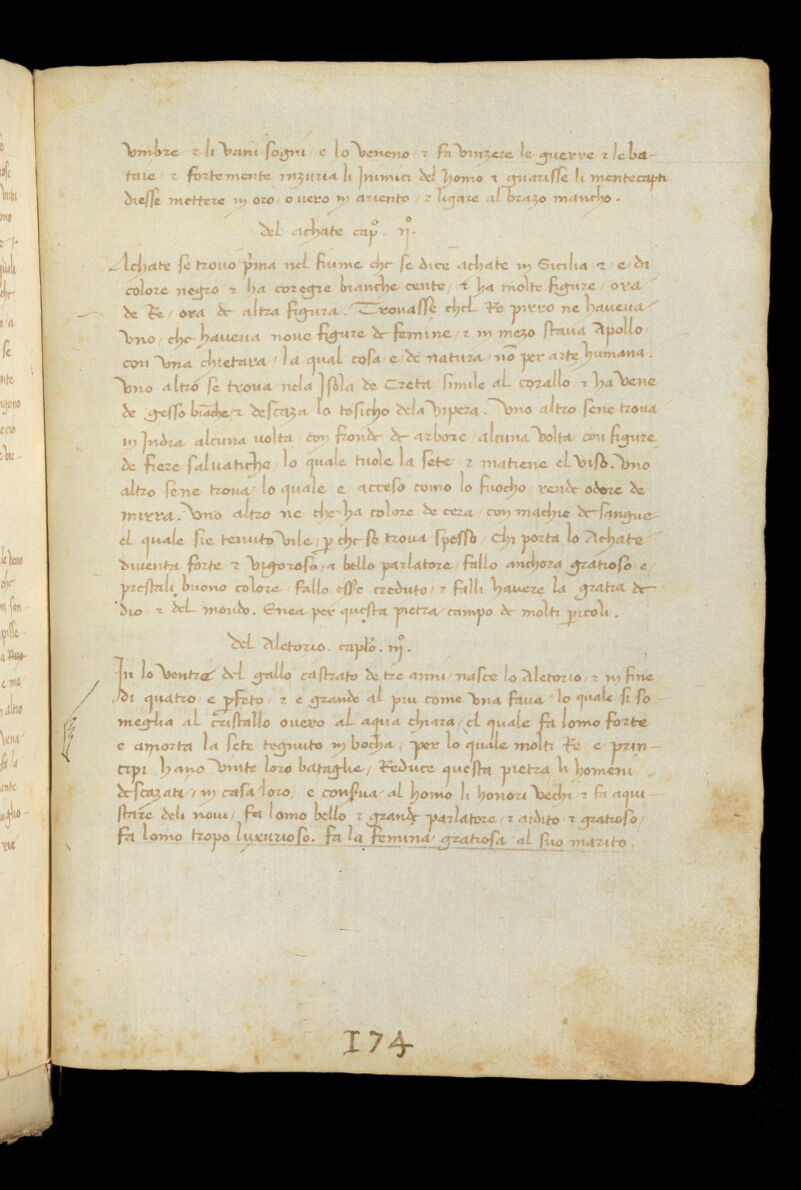 vmbre · ⁊ li vani sogni / e lo veneno · ⁊ fa vinzere le guerre ⁊ le ba-
taie / ⁊ fortemente inzuria li Inimici del homo ⁊ guarisse li mentecapti
diesse mettere in oro / o vero in ariento / ⁊ ligare al brazo mancho .
del achate cap.º ijº.
Achate se trovo p̃ma nel fiume che se dice achate in Sicilia ⁊ e di
colore negro ⁊ ha coregie bianche cente / ⁊ ha molte figure / ora
de Re / ora de altra figura . Trovasse chel Re pirro ne haveva
vno / che haveva nove figure de femine / ⁊ in mezo stava Apollo /
con vna chietara / la qual cosa e de natura / nõ per arte humana .
Vno altro se trova nela Isola de Creta simile al corallo / ⁊ ha vene
de gesso biãche / ⁊ descaza lo tosicho dela vipera . Vno altro sene trova
in India alcuna volta con fronde de arbore / alcuna volta con figure
de fiere salvatiche / lo quale tuole la sete ⁊ matiene el viso . Vno
altro sene trova lo quale e acceso como lo fuocho / rende odore de
mirra . Vno altro ne che ha colore de cera / con machie de sangue
el quale sie tenuto vile / p̱ che se trova spesso / Chi porta lo Achate
diventa forte ⁊ vigoroso / ⁊ bello parlatore / fallo anchora gratioso e /
prestali buono colore / fallo esse creduto / ⁊ falli havere la gratia de
dio ⁊ del mondo . Enea per questa pietra campo de molti p̱icoli .
del Aletorio . caplo. iijº.
In lo ventre del gallo castrato de tre anni / nasce lo Aletorio / ⁊ in fine
di quatro / e p̱feto / ⁊ e grande al piu come vna fava lo quale si so
meglia al cristallo overo al aqua chiara / el quale fa lomo forte
e amorta la sete tegnuto in bocha / per lo quale molti Re e prin-
cipi hano vinte loro bataglie / Reduce questa pietra li homeni
descazati / in casa loro / e cõserva / al homo li honori vechi ⁊ fa aqui
stare deli novi / fa lomo bello ⁊ grande parlatore / ⁊ ardito ⁊ gratioso /
fa lomo tropo luxurioso . fa la femina gratiosa al suo marito .
174